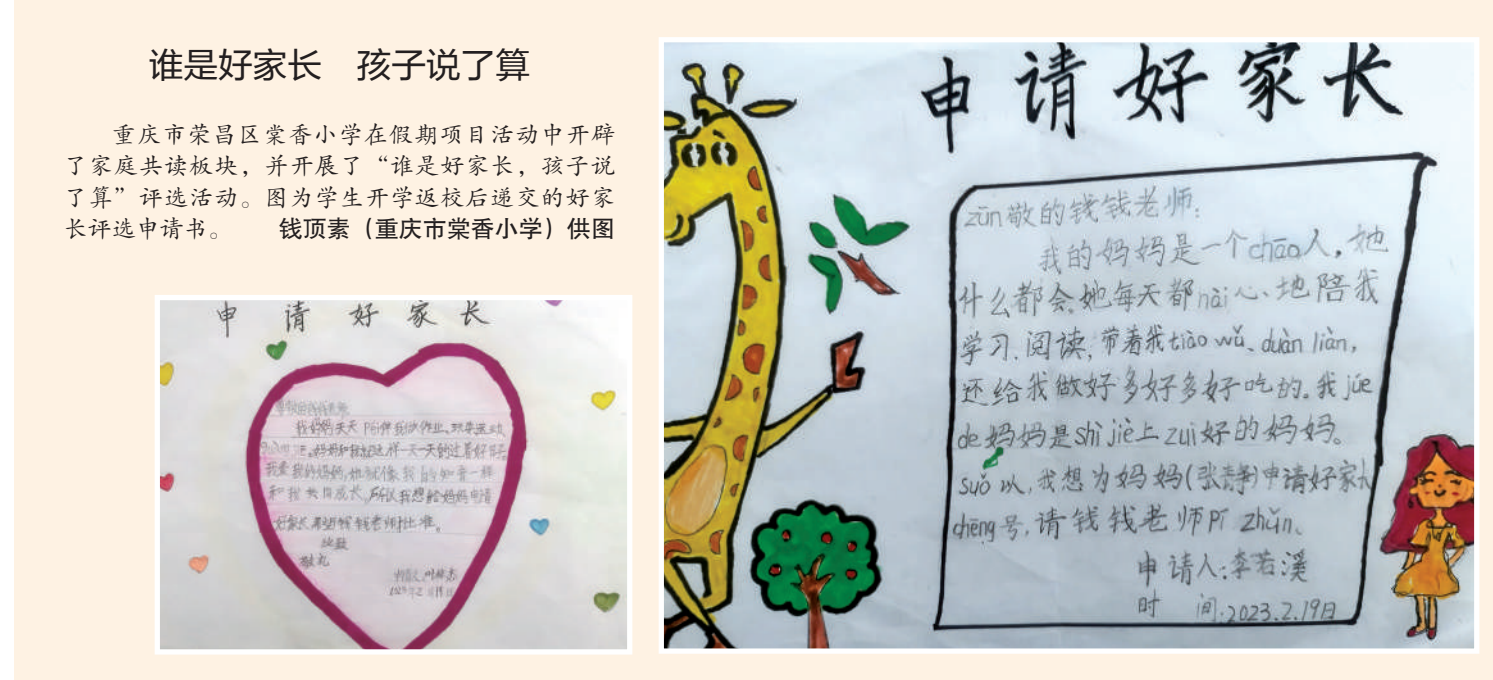 谁是好家长 孩子说了算
重庆市荣昌区棠香小学在假期项目活动中开辟
了家庭共读板块，并开展了“谁是好家长，孩子说
了算”评选活动。图为学生开学返校后递交的好家
长评选申请书。 钱顶素（重庆市棠香小学）供图
申请好家长
我妈妈天天Péi伴我做作业、
妈妈和我就这样一天一天的过着好日子
我爱我的妈妈，她就像我的知音一样
和我共同成长，所以我想给妈妈申请
好家长，希望钱钱老师批准。
此致
敬礼
申请好家长
zūn敬的钱钱老师：
我的妈妈是一个chāo人，她
什么都会，她每天都nài心、地陪我
学习、阅读，带着我tiào wǔ、duàn liàn，
还给我做好多好多好吃的。我jué
de妈妈是shì jiè上zuì好的妈妈。
suǒ以，我想为妈妈（张静）申请好家长
chēng号，请钱钱老师Pī zhǔn、
申请人：李若溪
时 间：2023.2.19日